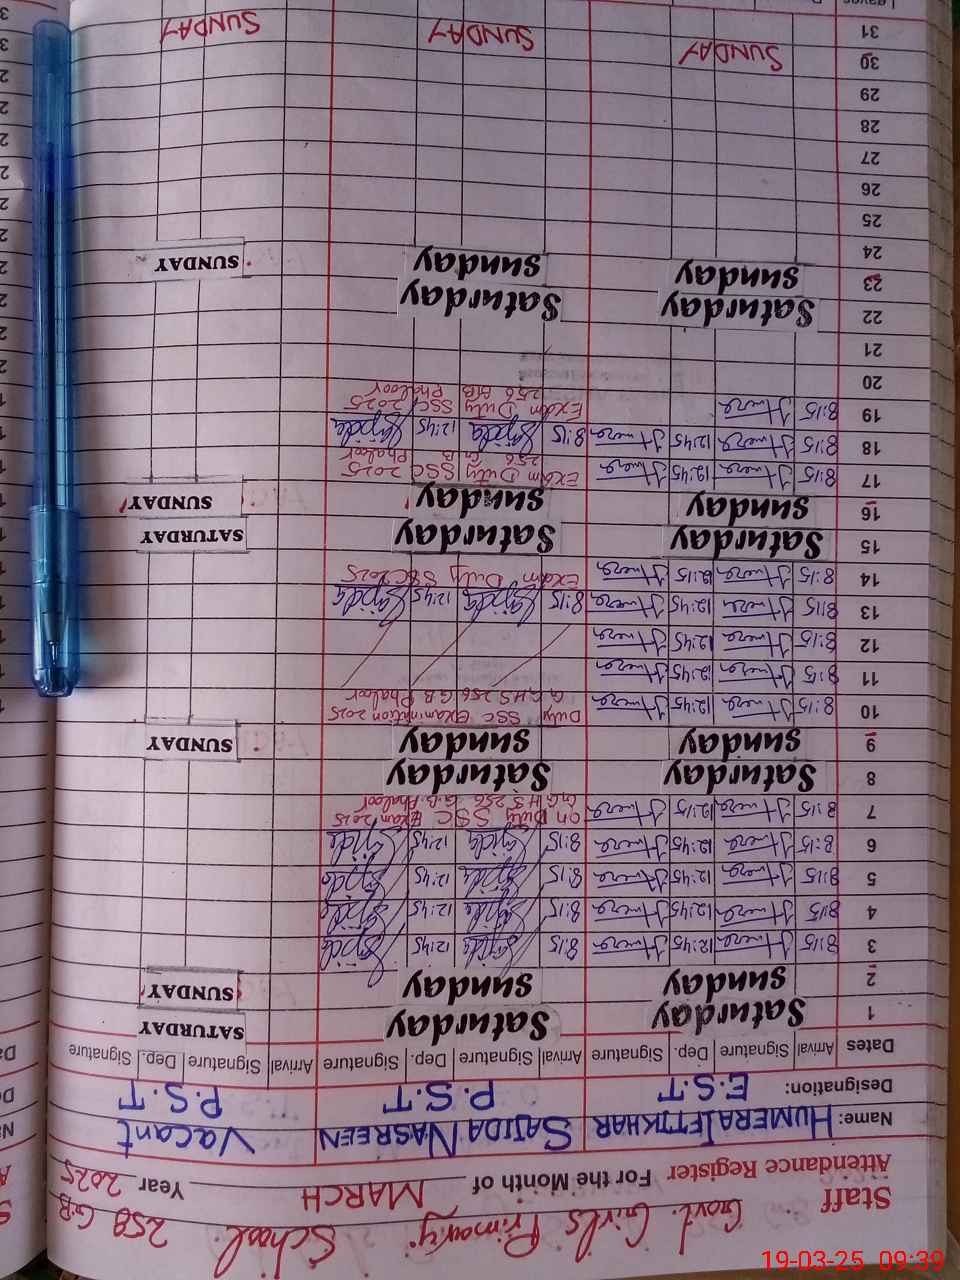 Govt. Girls Primary School 258 GB
Staff
Attendance Register For the Month of MARCH Year 2025
Name: HUMERA IFTIKHAR SAJIDA NASREEN Vacant
Designation: E.S.T P.S.T P.S.T
Dates Arrival Signature Dep. Signature Arrival Signature Dep. Signature Arrival Signature Dep. Signature
1 Saturday Saturday SATURDAY
2 Sunday Sunday SUNDAY
3 8:15 Humera 12:45 Humera 8:15 Sajida 12:45 Sajida
4 8:15 Humera 12:45 Humera 8:15 Sajida 12:45 Sajida
5 8:15 Humera 12:45 Humera 8:15 Sajida 12:45 Sajida
6 8:15 Humera 12:45 Humera 8:15 Sajida 12:45 Sajida
7 8:15 Humera 12:15 Humera on Duty SSC Exam 2025
G.G.H.S 256 G.B Phaloor
8 Saturday Saturday
9 Sunday Sunday SUNDAY
10 8:15 Humera 12:45 Humera Duty SSC Examinition 2025
G.G.H.S 256 G.B Phaloor
11 8:15 Humera 12:45 Humera
12 8:15 Humera 12:45 Humera
13 8:15 Humera 12:45 Humera 8:15 Sajida 12:45 Sajida
14 8:15 Humera 12:15 Humera Exam Duty SSC 2025
15 Saturday Saturday SATURDAY
16 Sunday Sunday SUNDAY
17 8:15 Humera 12:45 Humera Exam Duty SSC 2025
256 G.B Phaloor
18 8:15 Humera 12:45 Humera 8:15 Sajida 12:45 Sajida
19 8:15 Humera Exam Duty SSC 2025
256 G.B Phaloor
20
21
22 Saturday Saturday
23 Sunday Sunday SUNDAY
24
25
26
27
28
29
30 SUNDAY SUNDAY SUNDAY
31
Leaves
19-03-25 09:39